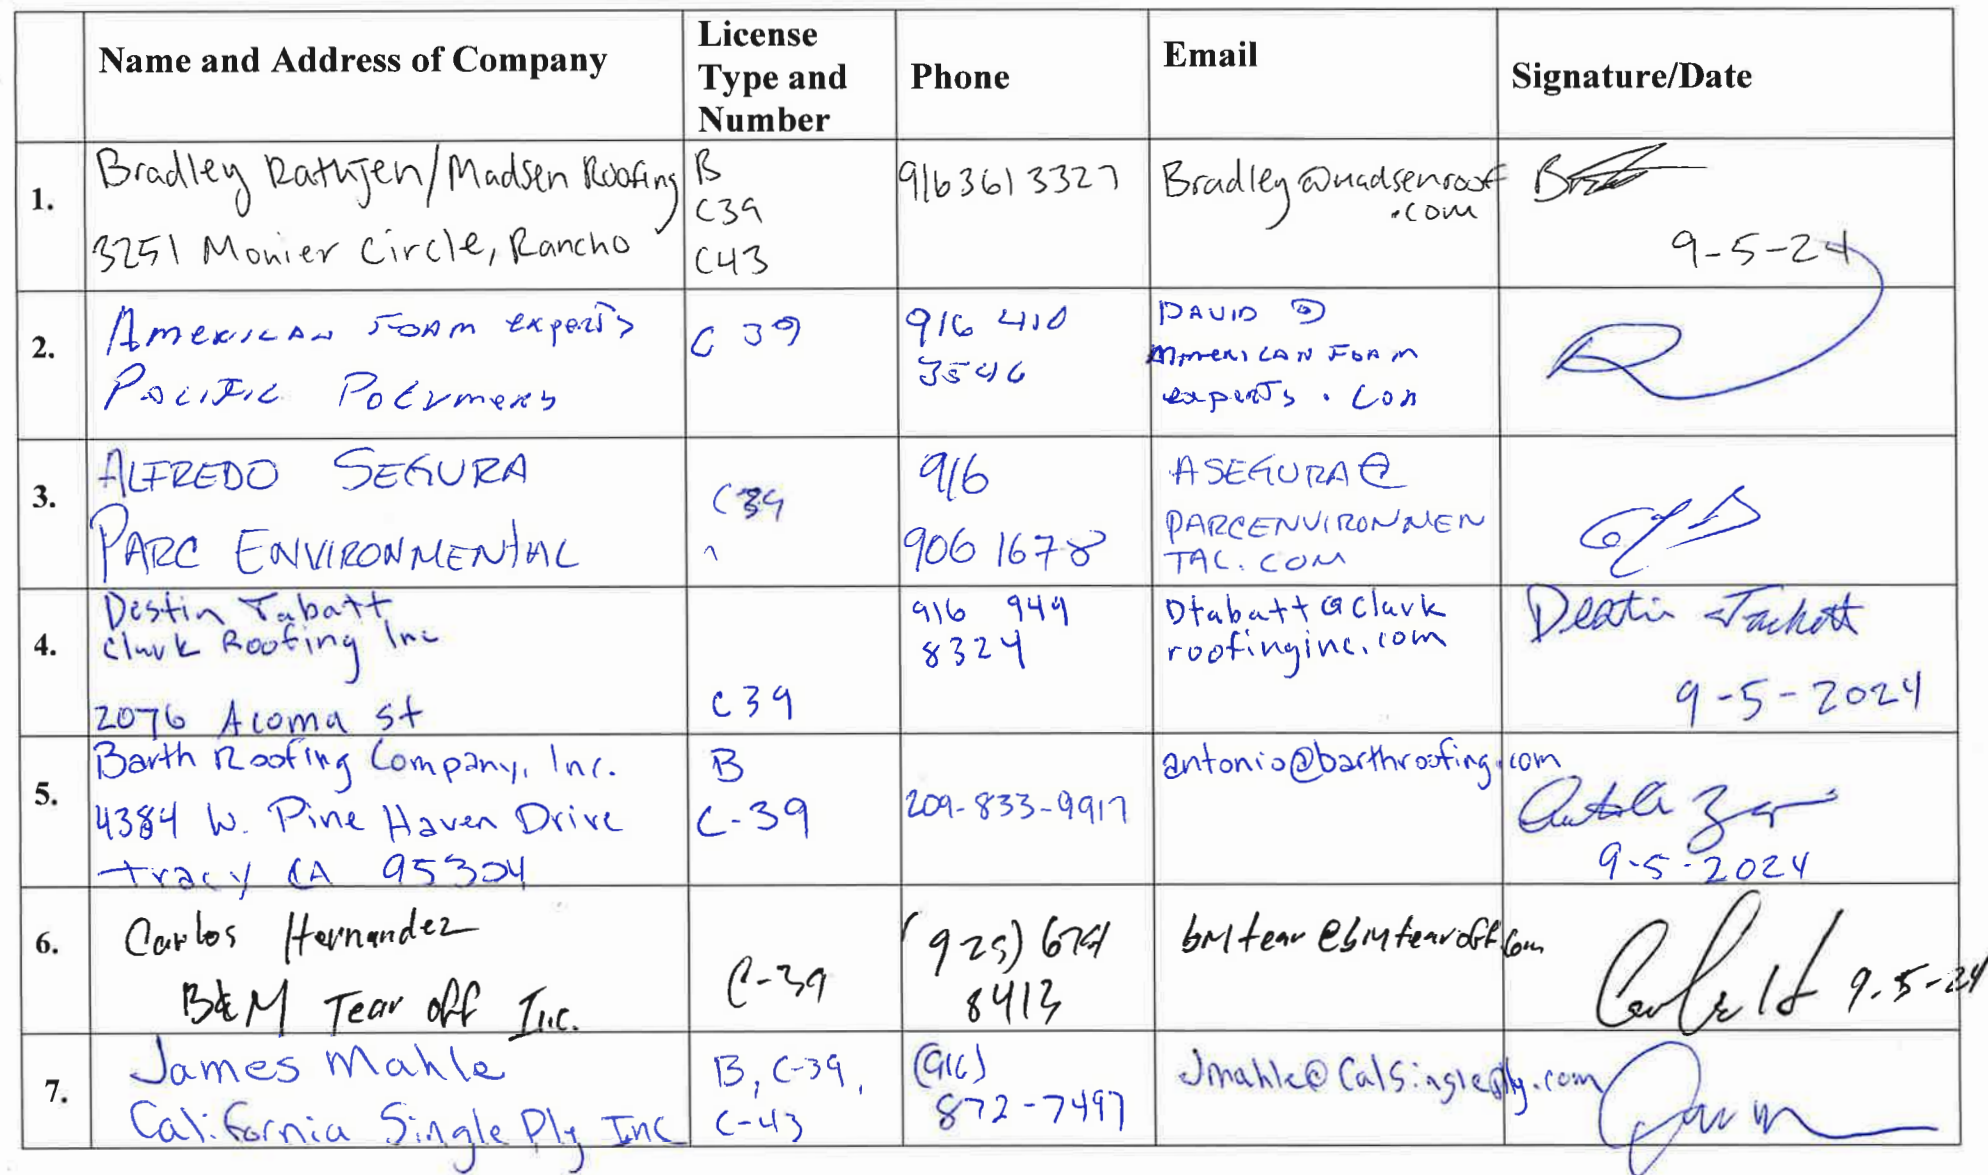 Name and Address of Company
License
Type and
Number
Phone
Email
Signature/Date
1.
Bradley Rathjen/Madsen Roofing
3251 Monier Circle, Rancho
B
C39
C43
9163613327
Bradley@madsenroof
.com
9-5-24
2.
American Foam experts
Pacific Polymers
C 39
916 410
3546
DAVID @
AMERICAN FOAM
experts . com
3.
ALFREDO SEGURA
PARC ENVIRONMENTAL
C39
916
906 1678
ASEGURA@
PARCENVIRONMEN
TAL.COM
4.
Destin Tabatt
Clark Roofing Inc
2076 Acoma St
C39
916 949
8324
Dtabatt@Clark
roofinginc.com
Destin
9-5-2024
5.
Barth Roofing Company, Inc.
4384 W. Pine Haven Drive
tracy CA 95304
B
C-39
209-833-9917
antonio@barthroofing.com
9-5-2024
6.
Carlos Hernandez
B&M Tear off Inc.
C-39
(925) 674
8413
bmtear@bmtearoff.com
9-5-24
7.
James Mahle
California Single Ply Inc
B, C-39,
C-43
(916)
872-7497
Jmahle@CalSingleply.com